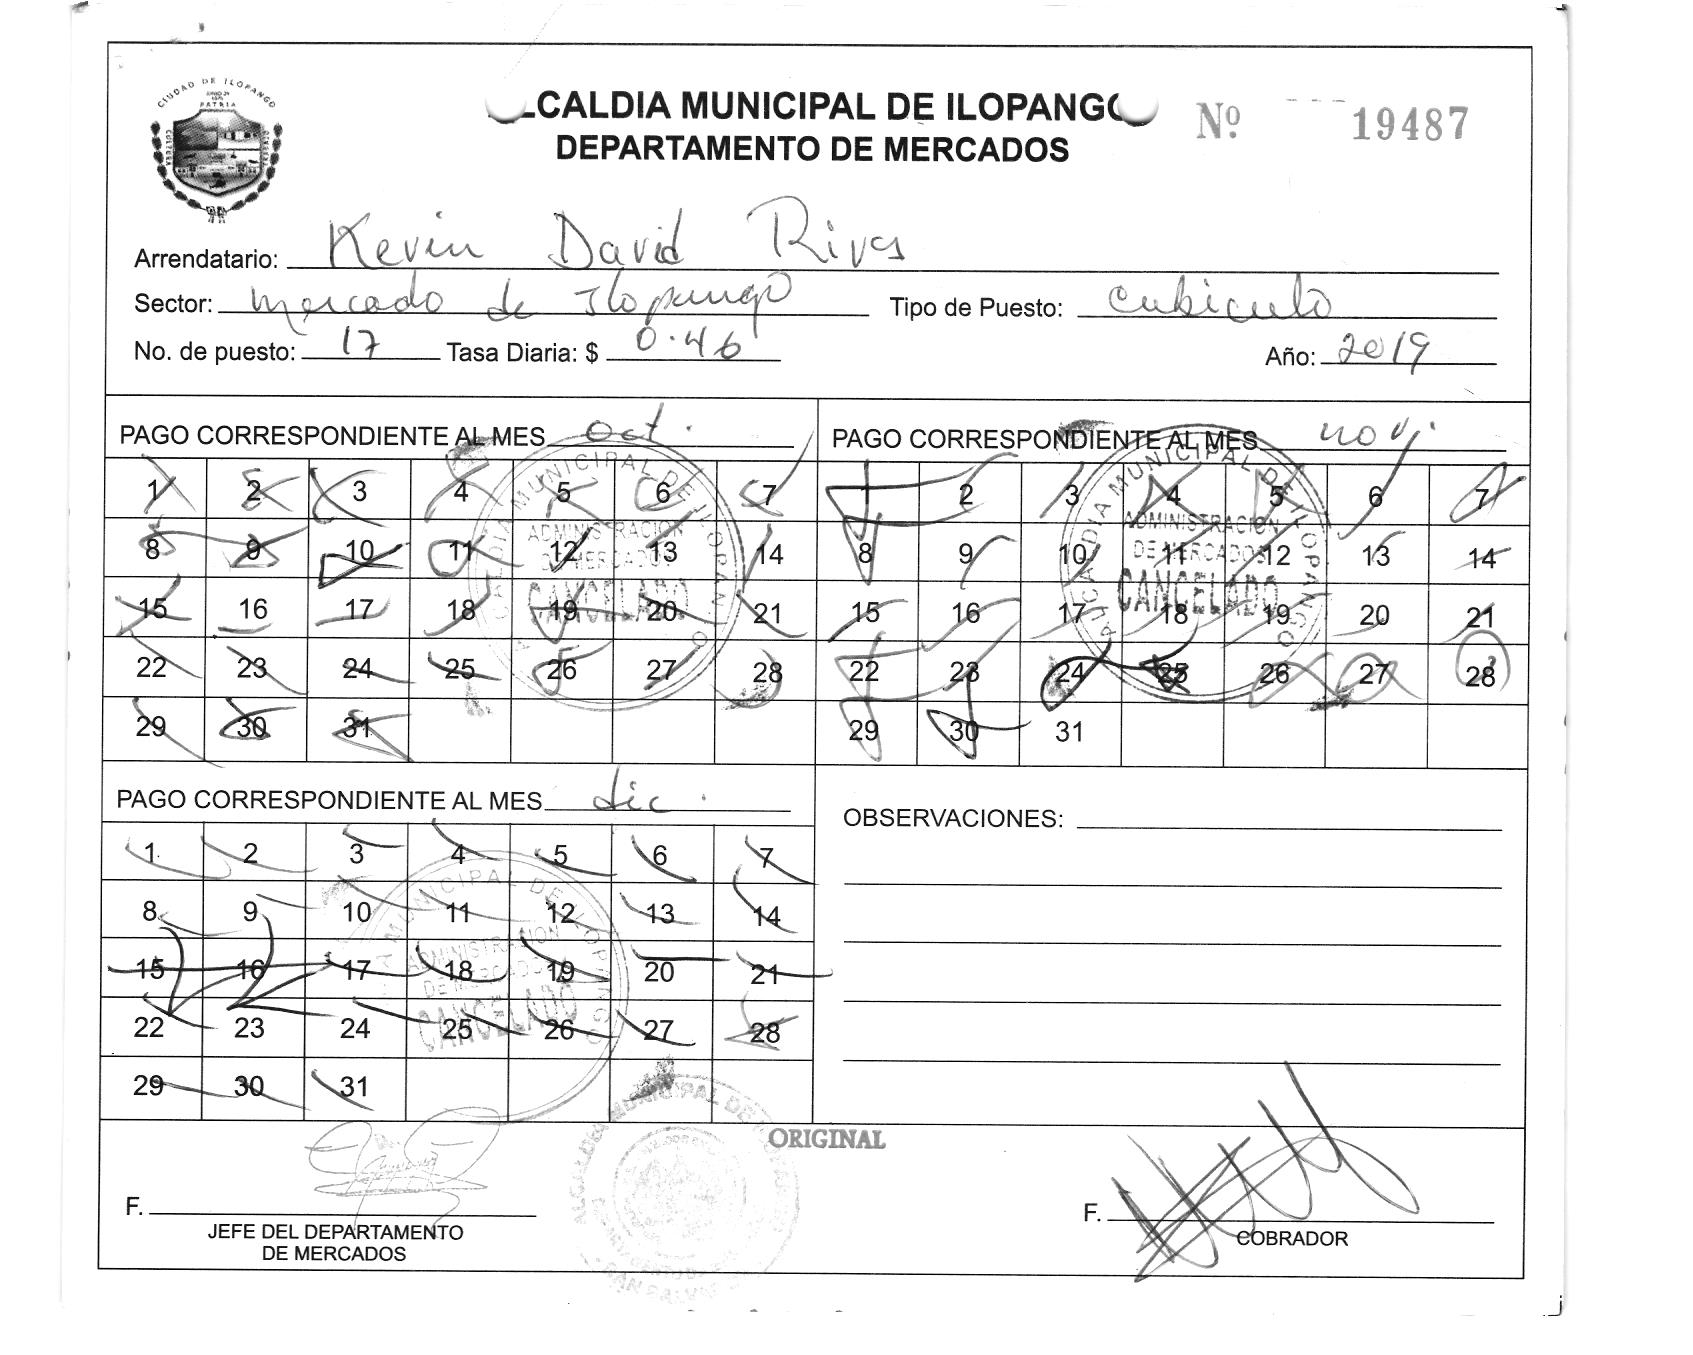 CIUDAD DE ILOPANGO
PATRIA
CULTURA
ALCALDIA MUNICIPAL DE ILOPANGO
DEPARTAMENTO DE MERCADOS
Nº 19487
Arrendatario: Kevin David Rivas
Sector: Mercado de Ilopango Tipo de Puesto: Cubiculo
No. de puesto: 17 Tasa Diaria: $ 0.46 Año: 2019
PAGO CORRESPONDIENTE AL MES Oct.
1 2 3 4 5 6 7
8 9 10 11 12 13 14
15 16 17 18 19 20 21
22 23 24 25 26 27 28
29 30 31
ALCALDIA MUNICIPAL DE ILOPANGO
ADMINISTRACION
DE MERCADOS
CANCELADO
PAGO CORRESPONDIENTE AL MES novi.
1 2 3 4 5 6 7
8 9 10 11 12 13 14
15 16 17 18 19 20 21
22 23 24 25 26 27 28
29 30 31
ALCALDIA MUNICIPAL DE ILOPANGO
ADMINISTRACION
DE MERCADOS
CANCELADO
PAGO CORRESPONDIENTE AL MES dic.
1 2 3 4 5 6 7
8 9 10 11 12 13 14
15 16 17 18 19 20 21
22 23 24 25 26 27 28
29 30 31
MUNICIPAL DE ILOPANGO
ADMINISTRACION
DE MERCADOS
CANCELADO
OBSERVACIONES:
ORIGINAL
F.
JEFE DEL DEPARTAMENTO
DE MERCADOS
MUNICIPAL DE
F.
COBRADOR